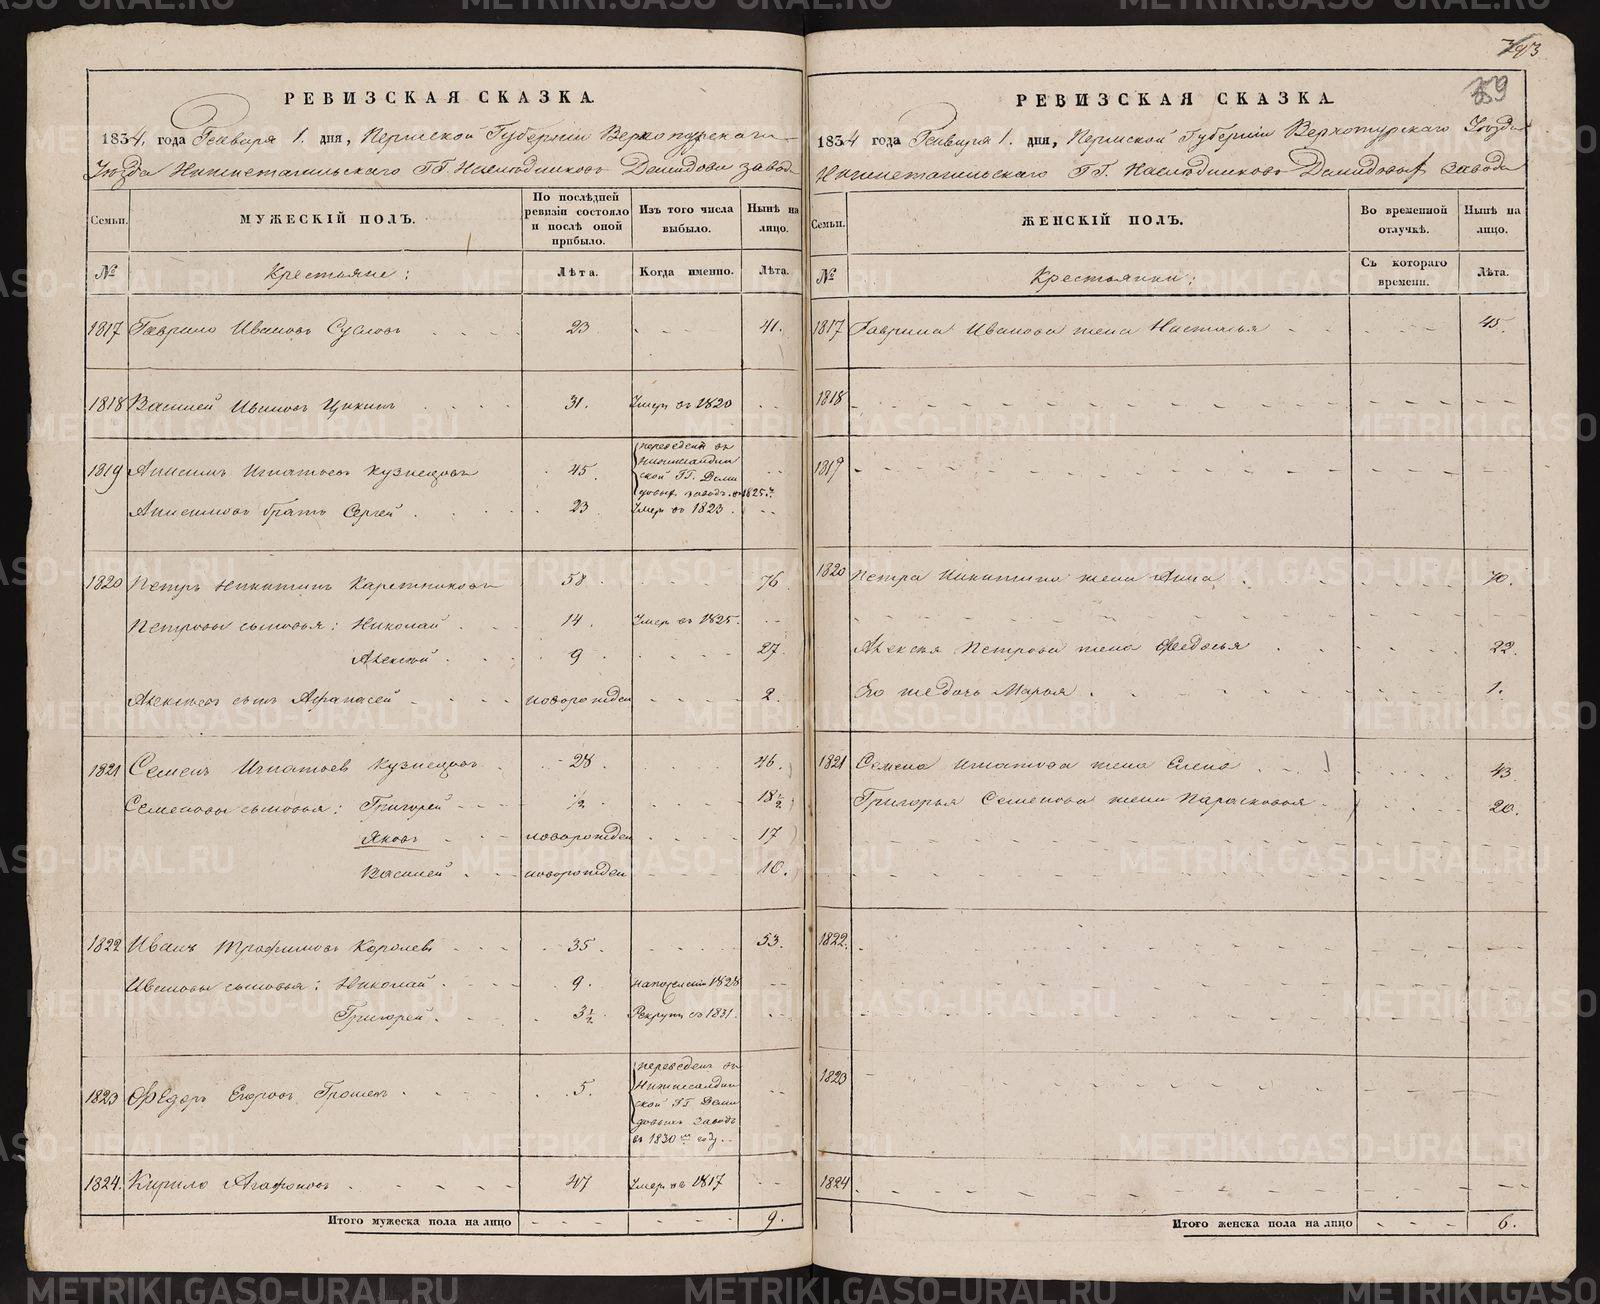 РЕВИЗСКАЯ СКАЗКА.
1834. года Генваря 1. дня, Пермской Губернiи Верхотурскаго
Уѣзда Нижнетагильскаго ГГ. Наслѣдниковъ Демидовы завода
Семьи.
МУЖЕСКIЙ ПОЛЪ.
По послѣдней ревизiи состояло и послѣ оной прибыло.
Изъ того числа выбыло.
Нынѣ на лицо.
№
Крестьяне:
Лѣта.
Когда именно.
Лѣта.
1817 Гаврило Ивановъ Сусловъ 23 41.
1818 Василей Ивановъ 31. Умеръ въ 1820
1819 Анисимъ Игнатьевъ Кузнецовъ 45. переведенъ въ
Нижнесалдин
ской ГГ. Деми
довых заводъ въ 1825 г.
Анисимовъ братъ Сергей 23 Умеръ въ 1823.
1820 Петръ Никитинъ Каретниковъ 58 76
Петровы сыновья: Николай 14. Умеръ въ 1825.
Алексей 9 27
Алексеевъ сынъ Афанасей новорожден 2.
1821 Семенъ Игнатьевъ Кузнецовъ 28 46.
Семеновы сыновья: Григорей ½ 18½
Яковъ новорожден 17
Василей новорожден 10.
1822 Иванъ Трофимовъ Королевъ 35 53.
Ивановы сыновья: Николай 9. на поселенiи 1828
Григорей 3½ Рекрутъ въ 1831.
1823 Федоръ Егоровъ 5. переведенъ въ
Нижнесалдин
ской ГГ Деми
довыхъ заводъ
въ 1830 м году.
1824. Кирило Агафоновъ 47 Умеръ въ 1817
Итого мужеска пола на лицо 9.
393
359
РЕВИЗСКАЯ СКАЗКА.
1834 года Генваря 1. дня, Пермской Губернiи Верхотурскаго Уѣзда
Нижнетагильскаго ГГ. Наслѣдниковъ Демидовых завода
Семьи.
ЖЕНСКIЙ ПОЛЪ.
Во временной отлучкѣ.
Нынѣ на лицо.
№
Крестьянки:
Съ котораго времени.
Лѣта.
1817 Гаврила Иванова жена Насталья 45.
1818
1819
1820 Петра Никитина жена Анна 70.
Алексѣя Петрова жена Федосья 22.
Его же дочь Марья 1.
1821 Семена Игнатова жена Елена 43
Григорья Семенова жена Парасковья 20.
1822.
1823
1824
Итого женска пола на лицо 6.
METRIKI.GASO-URAL.RU